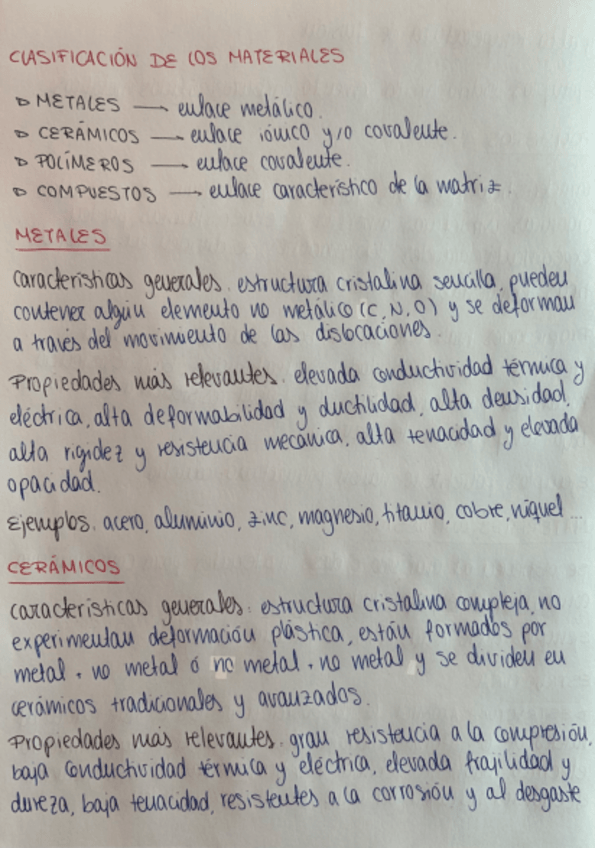 CLASIFICACIÓN DE LOS MATERIALES
▷ METALES → enlace metálico.
▷ CERÁMICOS → enlace iónico y/o covalente.
▷ POLÍMEROS → enlace covalente.
▷ COMPUESTOS → enlace característico de la matriz.
METALES
Características generales: estructura cristalina sencilla, pueden
contener algún elemento no metálico (C, N, O) y se deforman
a través del movimiento de las dislocaciones.
Propiedades más relevantes: elevada conductividad térmica y
eléctrica, alta deformabilidad y ductilidad, alta densidad,
alta rigidez y resistencia mecánica, alta tenacidad y elevada
opacidad.
Ejemplos: acero, aluminio, zinc, magnesio, titanio, cobre, níquel ...
CERÁMICOS
Características generales: estructura cristalina compleja, no
experimentan deformación plástica, están formados por
metal + no metal ó no metal + no metal y se dividen en
cerámicos tradicionales y avanzados.
Propiedades más relevantes: gran resistencia a la compresión,
baja conductividad térmica y eléctrica, elevada frajilidad y
dureza, baja tenacidad, resistentes a la corrosión y al desgaste